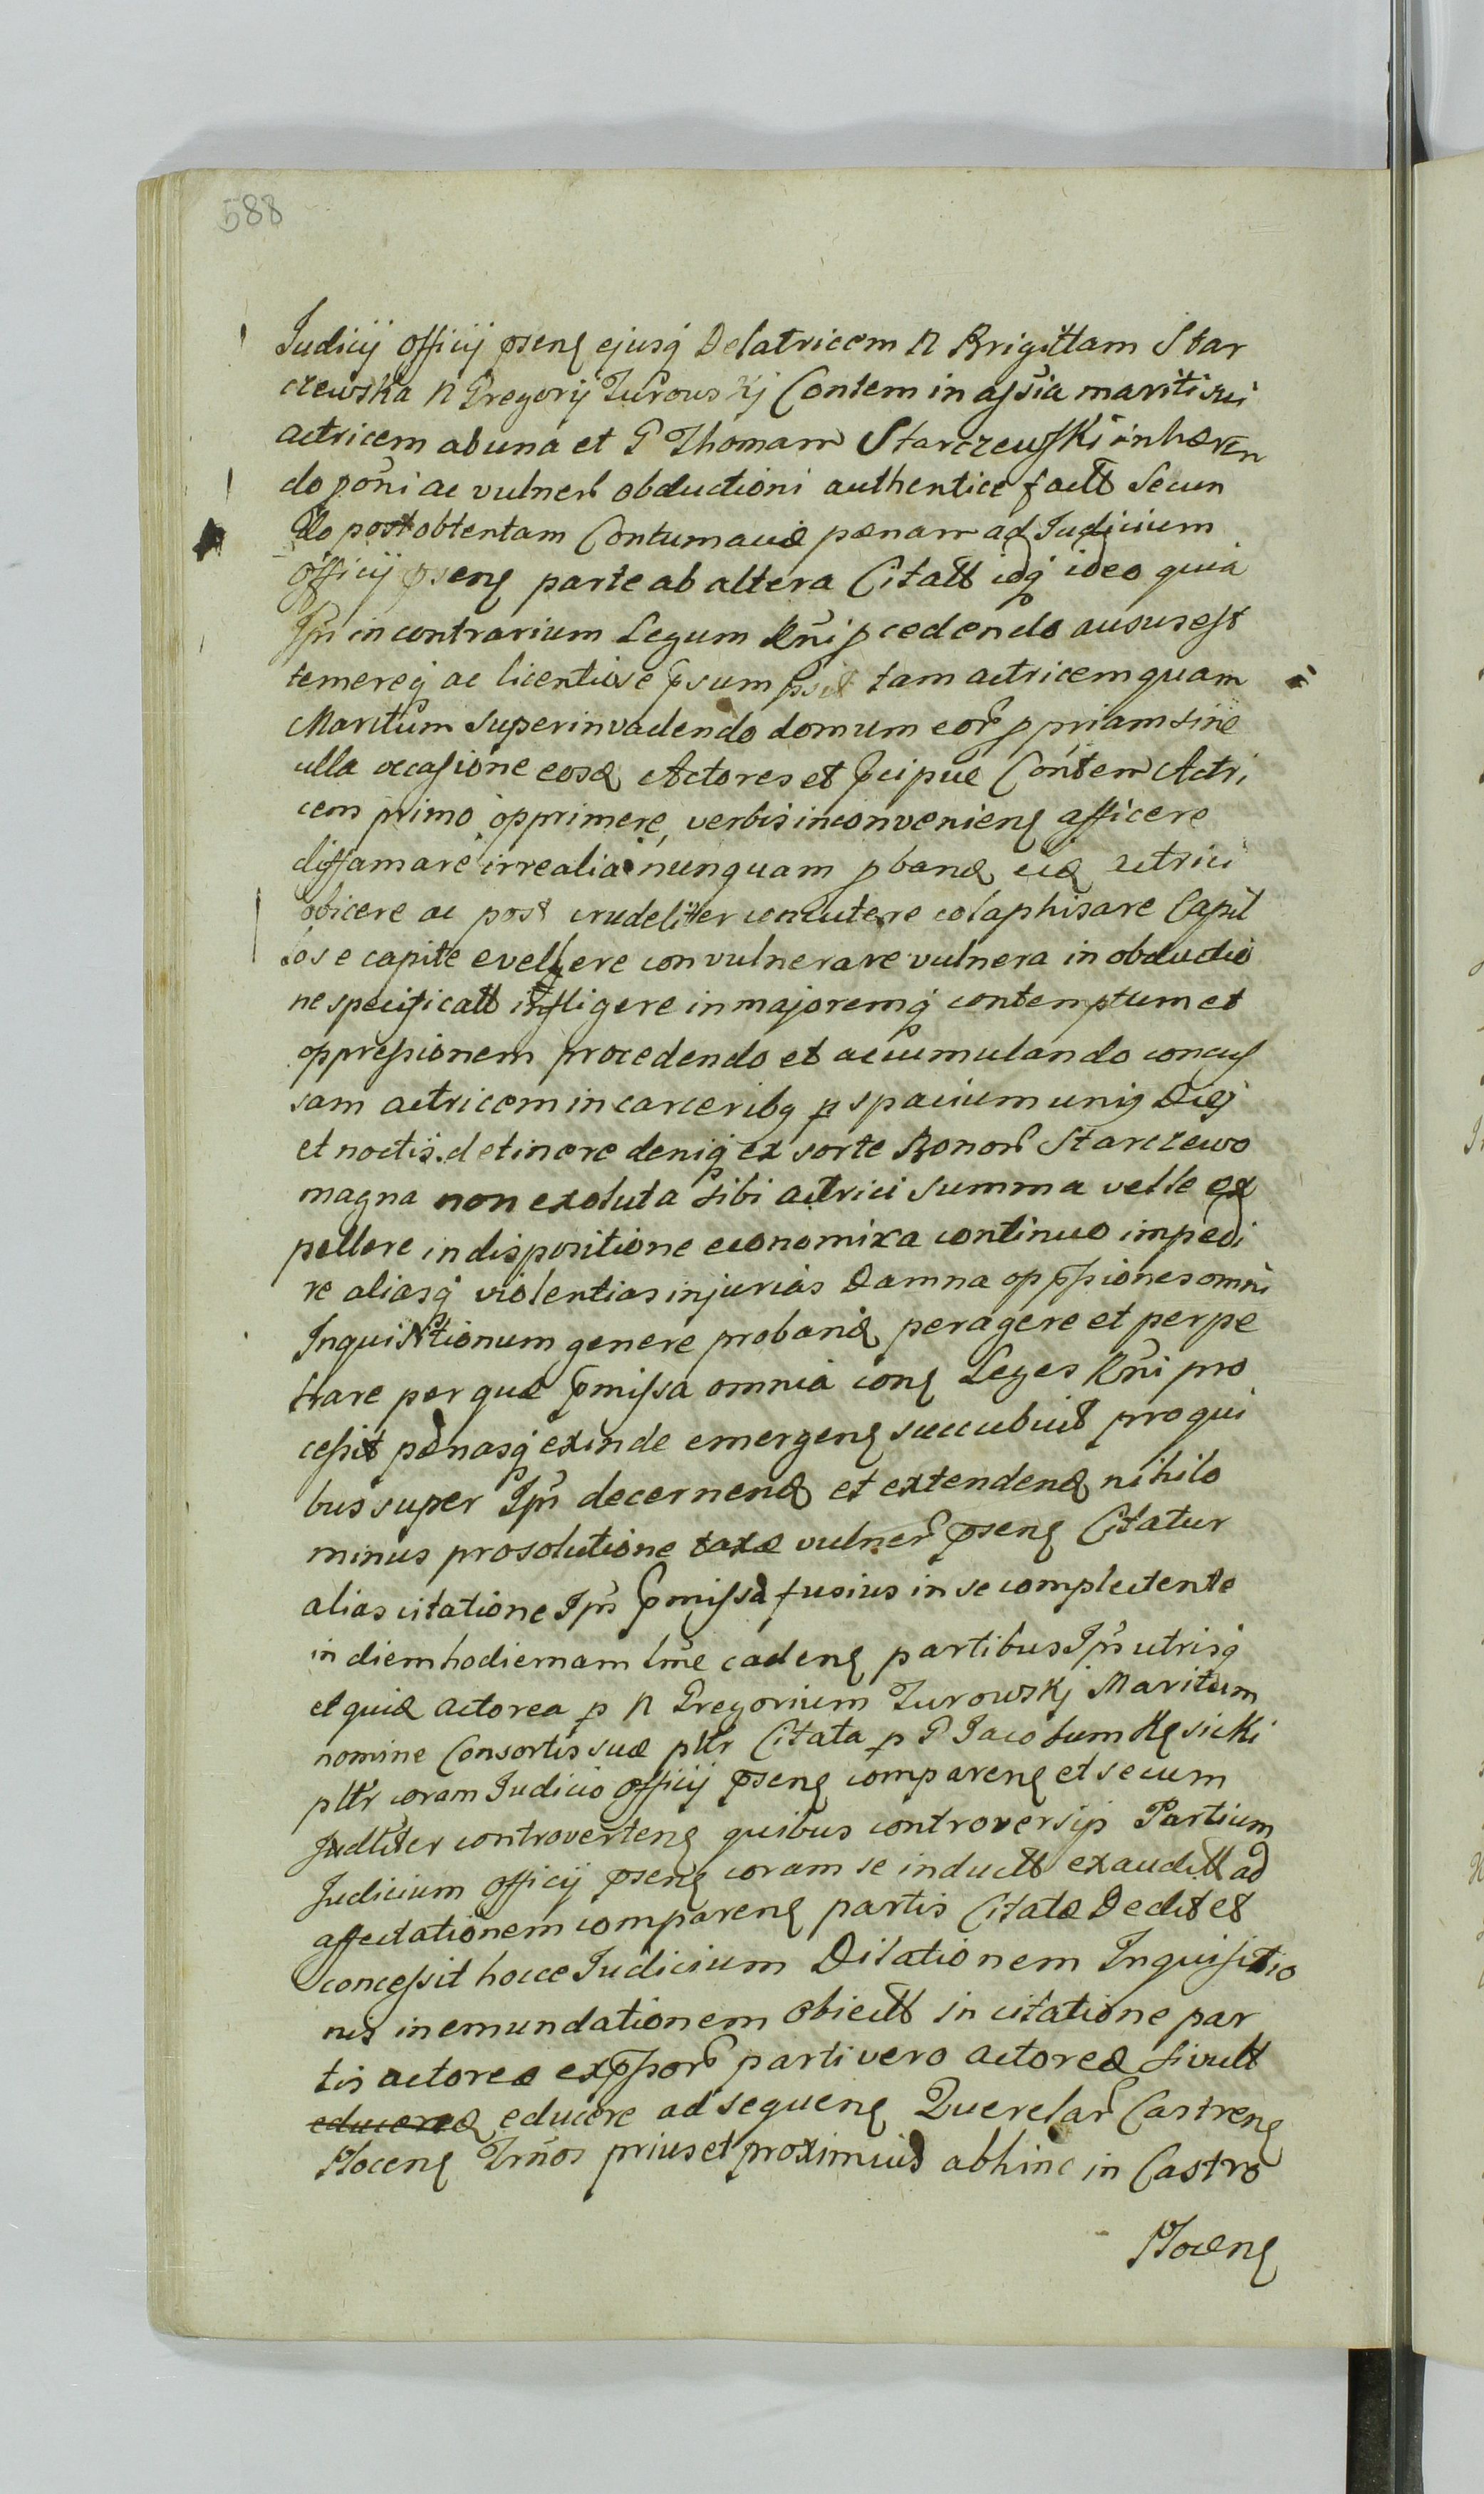 588
Judicij Officij pseng ejusq Delatricem N Brigittam Star
czewska N Gregorij Zurowskj Contem in assia mariti sui
actricem ab una et G Thomam Starczewski inhæren
do poni ac vulner obductioni authentice factt Secun
do post obtentam Contumaciæ pænam ad Judicium
Officij pseng parte ab altera Citatt idq ideo quia
Ipn in contrarium Legum Rni pcedendo ausus est
temereq ac licentiose psumpsit tam actricem quam
Maritum superinvadendo domum eor ppriam sine
ulla occasione eosd Actores et pcipue Contem Actri
cem primo opprimere, verbis inconvenieng afficere
diffamare irrealia nunquam pband eid actrici
obicere ac post crudeliter concutere colaphisare Capil
los e capite evellere convulnerare vulnera in obductio
ne specificatt infligere in majoremq contemptum et
oppressionem procedendo et accumulando concus
sam actricem in carceribq p spacium uniq Diej
et noctis detinere deniq ex sorte Bonor Starczewo
magna non exoluta sibi actrici summa velle ex
pellere in dispositione economixa continuo impedi
re aliasq violentias injurias Damna oppsiones omni
Inquisitionum genere proband peragere et perpe
trare per quæ pmissa omnia cong Leges Rni pro
cessit pænasq exinde emergeng succubuit pro qui
bus super Ipn decernend et extendend nihilo
minus pro solutione taxæ vulner pseng Citatur
alias citatione Ipn pmissa fusius in se complectente
in diem hodiernam tme cadeng partibus Ipn utrisq
et quid actorea p N Gregorium Zurowskj Maritum
nomine Consortis suæ pltr Citata p G Jacobum Kęsicki
pltr coram Judicio Officij pseng compareng et secum
Judliter controverteng quibus controversijs Partium
Judicium Officij pseng coram se inductt exauditt ad
affectationem compareng partis Citatæ Dedit et
concessit hocce Judicium Dilationem Inquisitio
nis in emundationem obiectt in citatione par
tis actoreæ expssor parti vero actoreæ si vult
educered educere ad sequeng Querelar Castreng
Ploceng Trnos prius et proximius abhinc in Castro
Ploceng